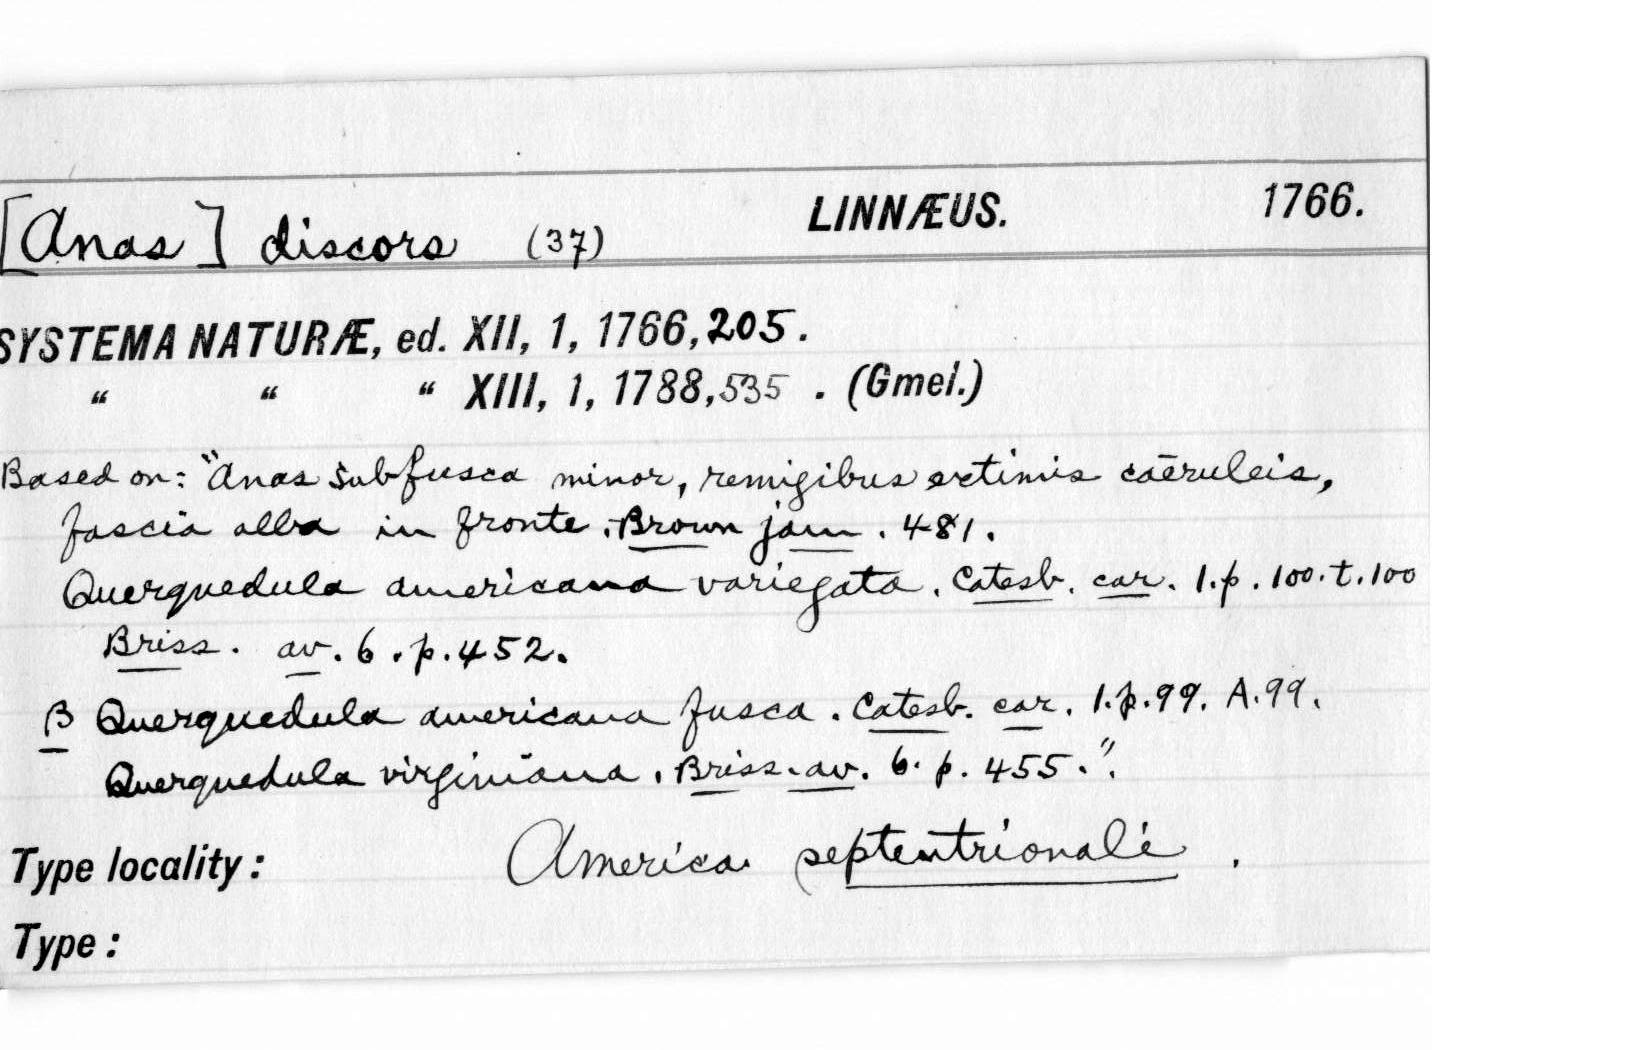 [Anas] discors (37) LINNÆUS. 1766.
SYSTEMA NATURÆ, ed. XII, 1, 1766, 205.
“ “ “ XIII, 1, 1788, 535. (Gmel.)
Based on: "Anas subfusca minor, remigibus extimis caēruleis,
fascia alba in fronte. Brown jam. 481.
Querquedula americana variegata. Catesb. car. 1. p. 100. t. 100
Briss. av. 6. p. 452.
β Querquedula americana fusca. Catesb. car. 1. p. 99. A. 99.
Querquedula virginiana. Briss. av. 6. p. 455.".
Type locality: America septentrionali.
Type: